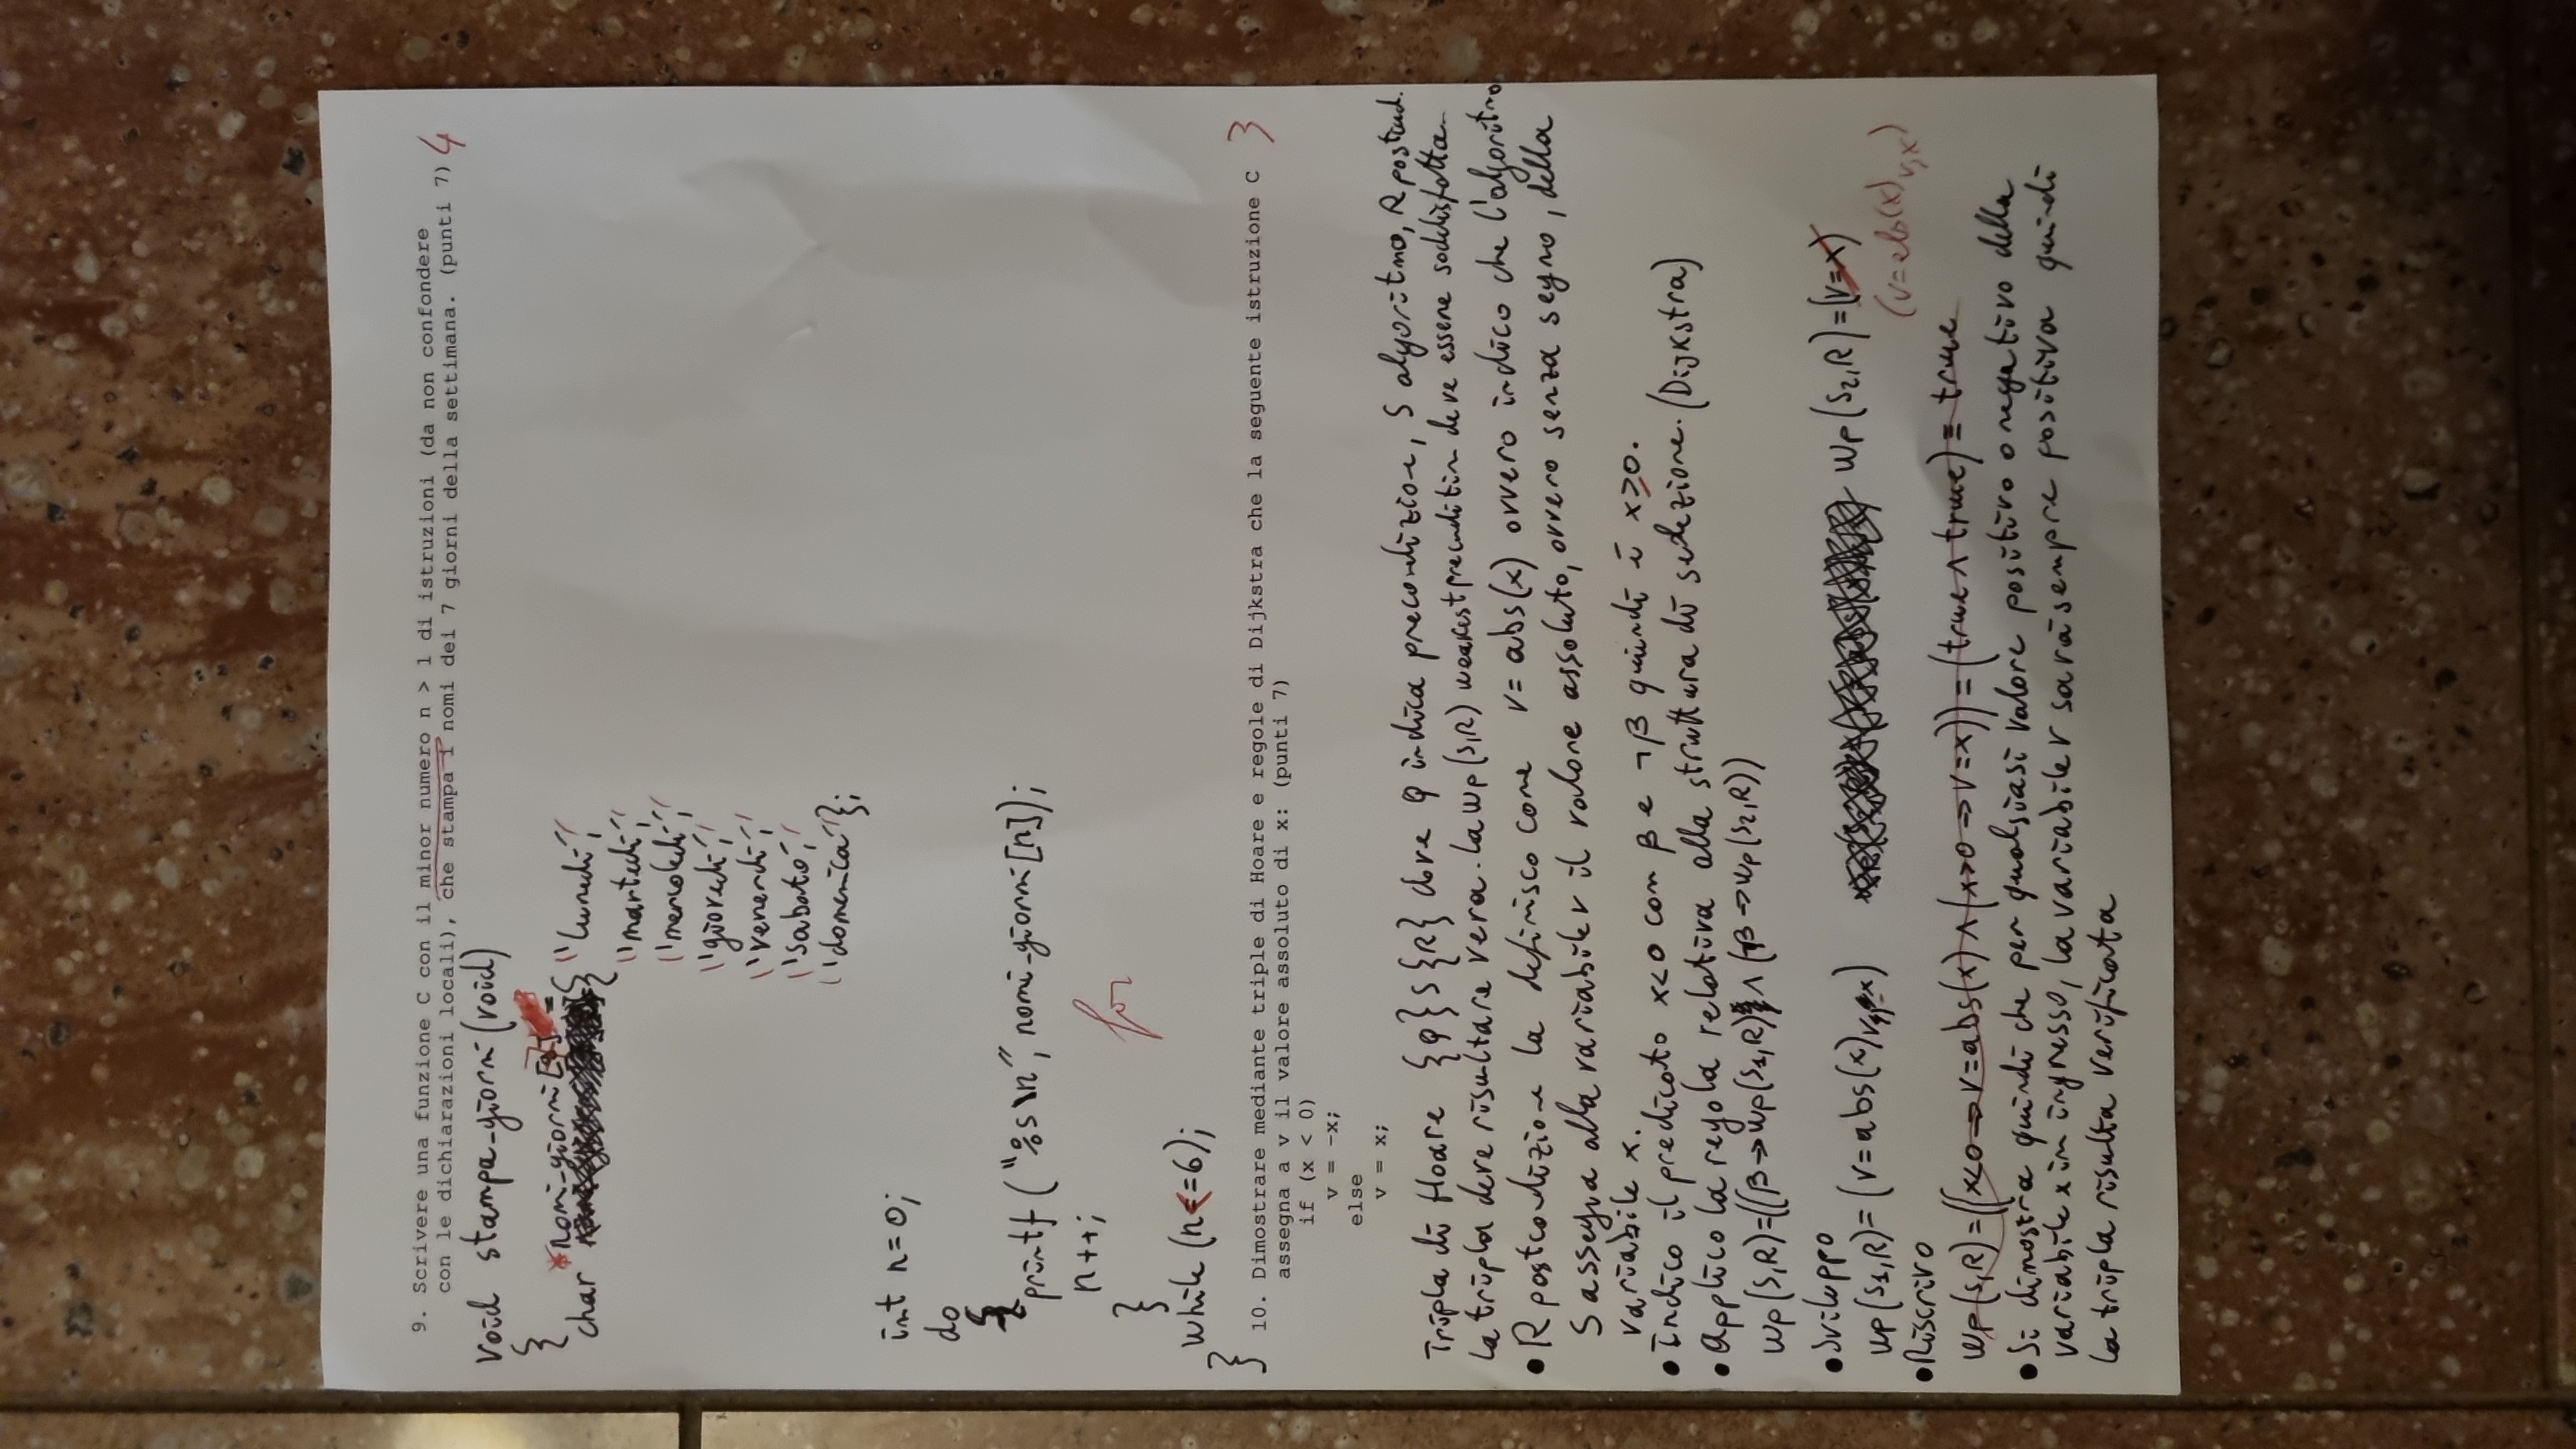 9. Scrivere una funzione C con il minor numero n > 1 di istruzioni (da non confondere
con le dichiarazioni locali), che stampa i nomi dei 7 giorni della settimana. (punti 7) 4
void stampa_giorni (void)
{
*nomi_giorni [7] =
char { "lunedì",
"martedì",
"mercoledì",
"giovedì",
"venerdì",
"sabato",
"domenica"};
int n=0;
do
{
printf ("%s\n", nomi_giorni [n]);
n++;
for
}
while (n<=6);
}
10. Dimostrare mediante triple di Hoare e regole di Dijkstra che la seguente istruzione C 3
assegna a v il valore assoluto di x: (punti 7)
if (x < 0)
v = -x;
else
v = x;
Tripla di Hoare {Q}S{R} dove Q indica precondizione, S algoritmo, R postcond.
la tripla deve risultare vera. la wp(S,R) weakest precondition deve essere soddisfatta
• R postcondizione la definisco come v=abs(x) ovvero indico che l'algoritmo
S assegna alla variabile v il valore assoluto, ovvero senza segno, della
variabile x.
• Indico il predicato x<0 con β e ¬β quindi è x≥0.
• Applico la regola relativa alla struttura di selezione. (Dijkstra)
wp(S,R)=((β→wp(S1,R)) ∧ (¬β→wp(S2,R))
• Sviluppo
wp(S1,R)=(v=abs(x)v,-x) wp(S2,R)=(v=x)
(v=abs(x)v,x)
• Riscrivo
wp(S,R)=((x<0⇒v=abs(x) ∧ (x>0⇒v=x))=(true ∧ true)≡ true
• Si dimostra quindi che per qualsiasi valore positivo o negativo della
variabile x in ingresso, la variabile v sarà sempre positiva quindi
la tripla risulta verificata